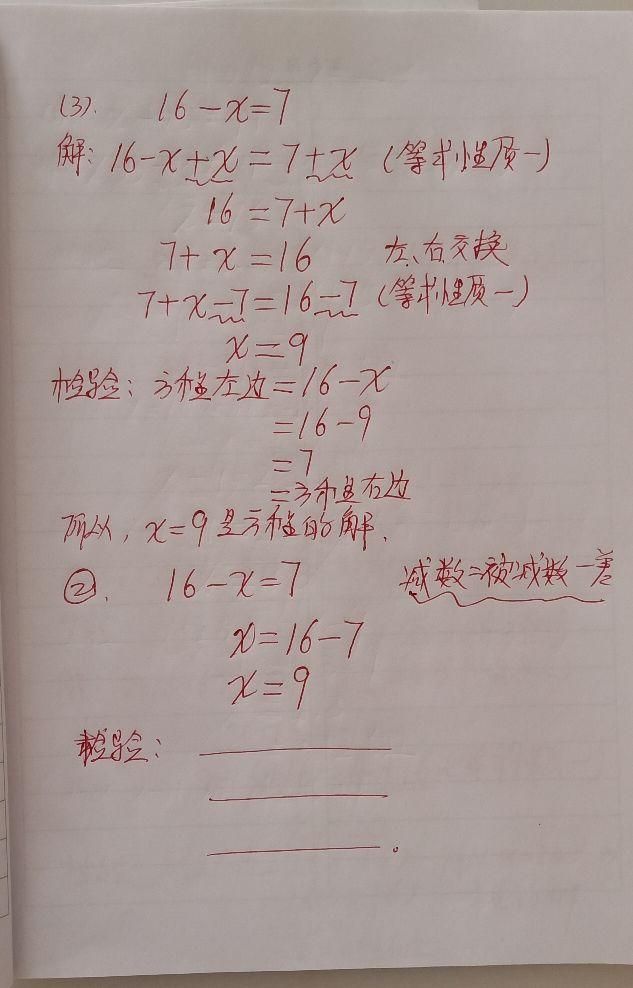 (3). 16-x=7
解: 16-x+x=7+x (等式性质一)
16=7+x
7+x=16 左、右交换
7+x-7=16-7 (等式性质一)
x=9
检验: 方程左边=16-x
=16-9
=7
=方程右边
所以, x=9是方程的解.
②. 16-x=7 减数=被减数-差
x=16-7
x=9
检验: